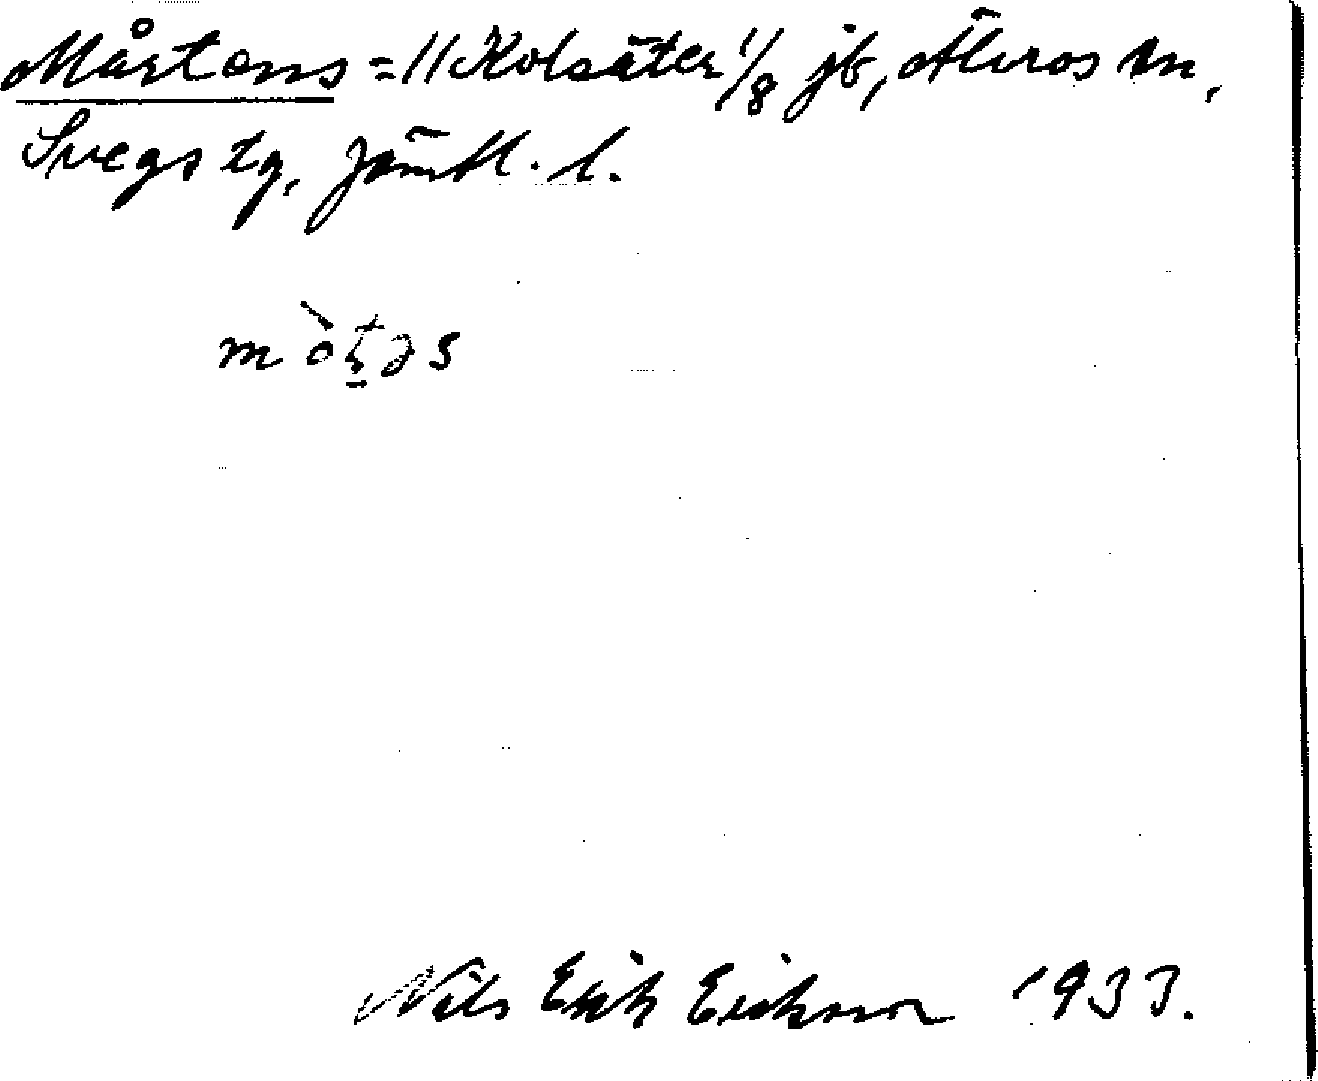 Mårtens = 11 Kolsäter 1/8 jb, Älvros sn,
Svegs tg, Jämtl. l.
mò̀ʈəs
Nils Erik Eriksson 1933.